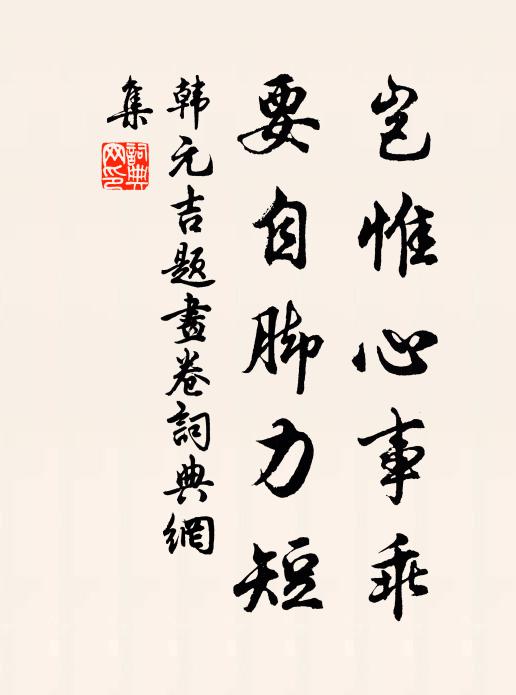 岂惟心事乖
要自脚力短
韩元吉题畫卷詞典網
集
詞典
网印